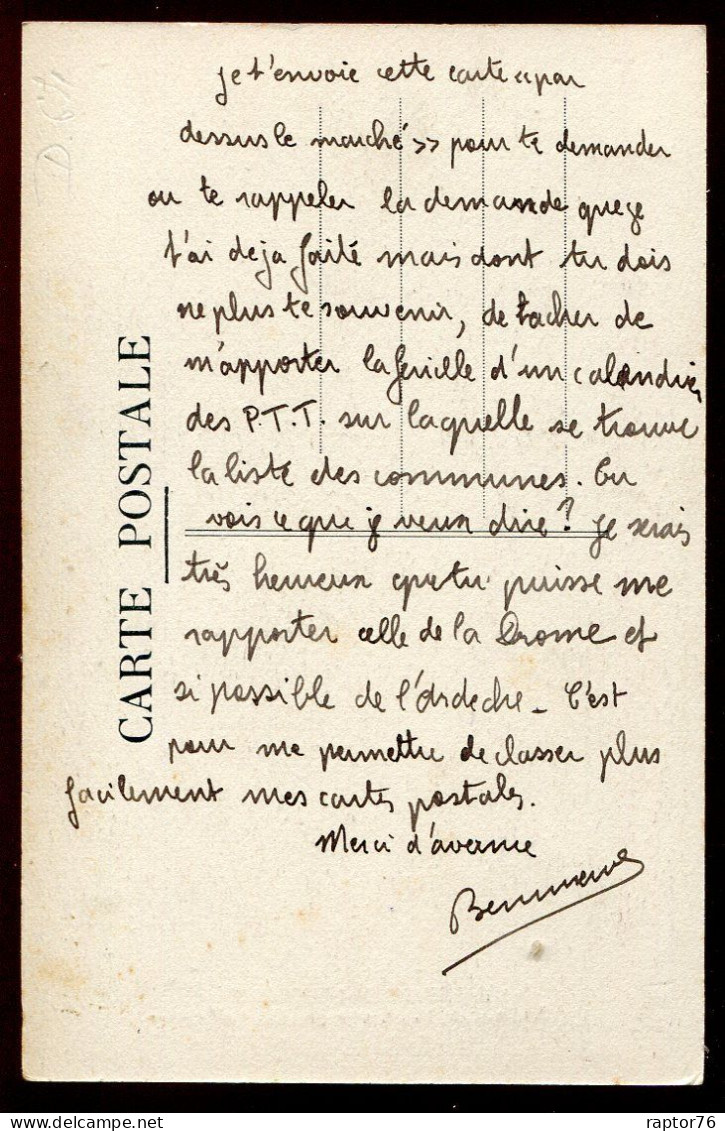 D.64
je t'envoie cette carte «par
dessus le marché» pour te demander
ou te rappeler la demande que je
t'ai deja faite mais dont tu dois
ne plus te souvenir, de tacher de
m'apporter la feuille d'un calendrier
des P.T.T. sur laquelle se trouve
la liste des communes. Tu
vois ce que je veux dire? Je serais
très heureux que tu puisse me
rapporter celle de la Drome et
si possible de l'Ardeche_ C'est
pour me permettre de classer plus
facilement mes cartes postales.
Merci d'avance
CARTE POSTALE
raptor76